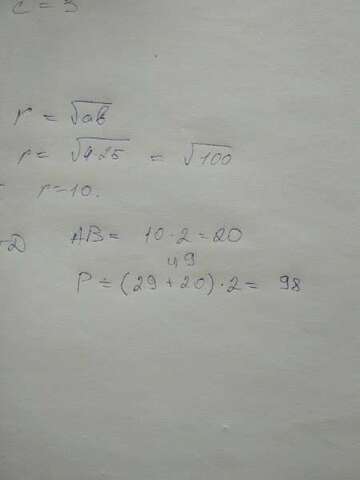 c = 5
r = √ab
r = √4·25 = √100
r = 10.
AB = 10·2 = 20
49
P = (29 + 20)·2 = 98